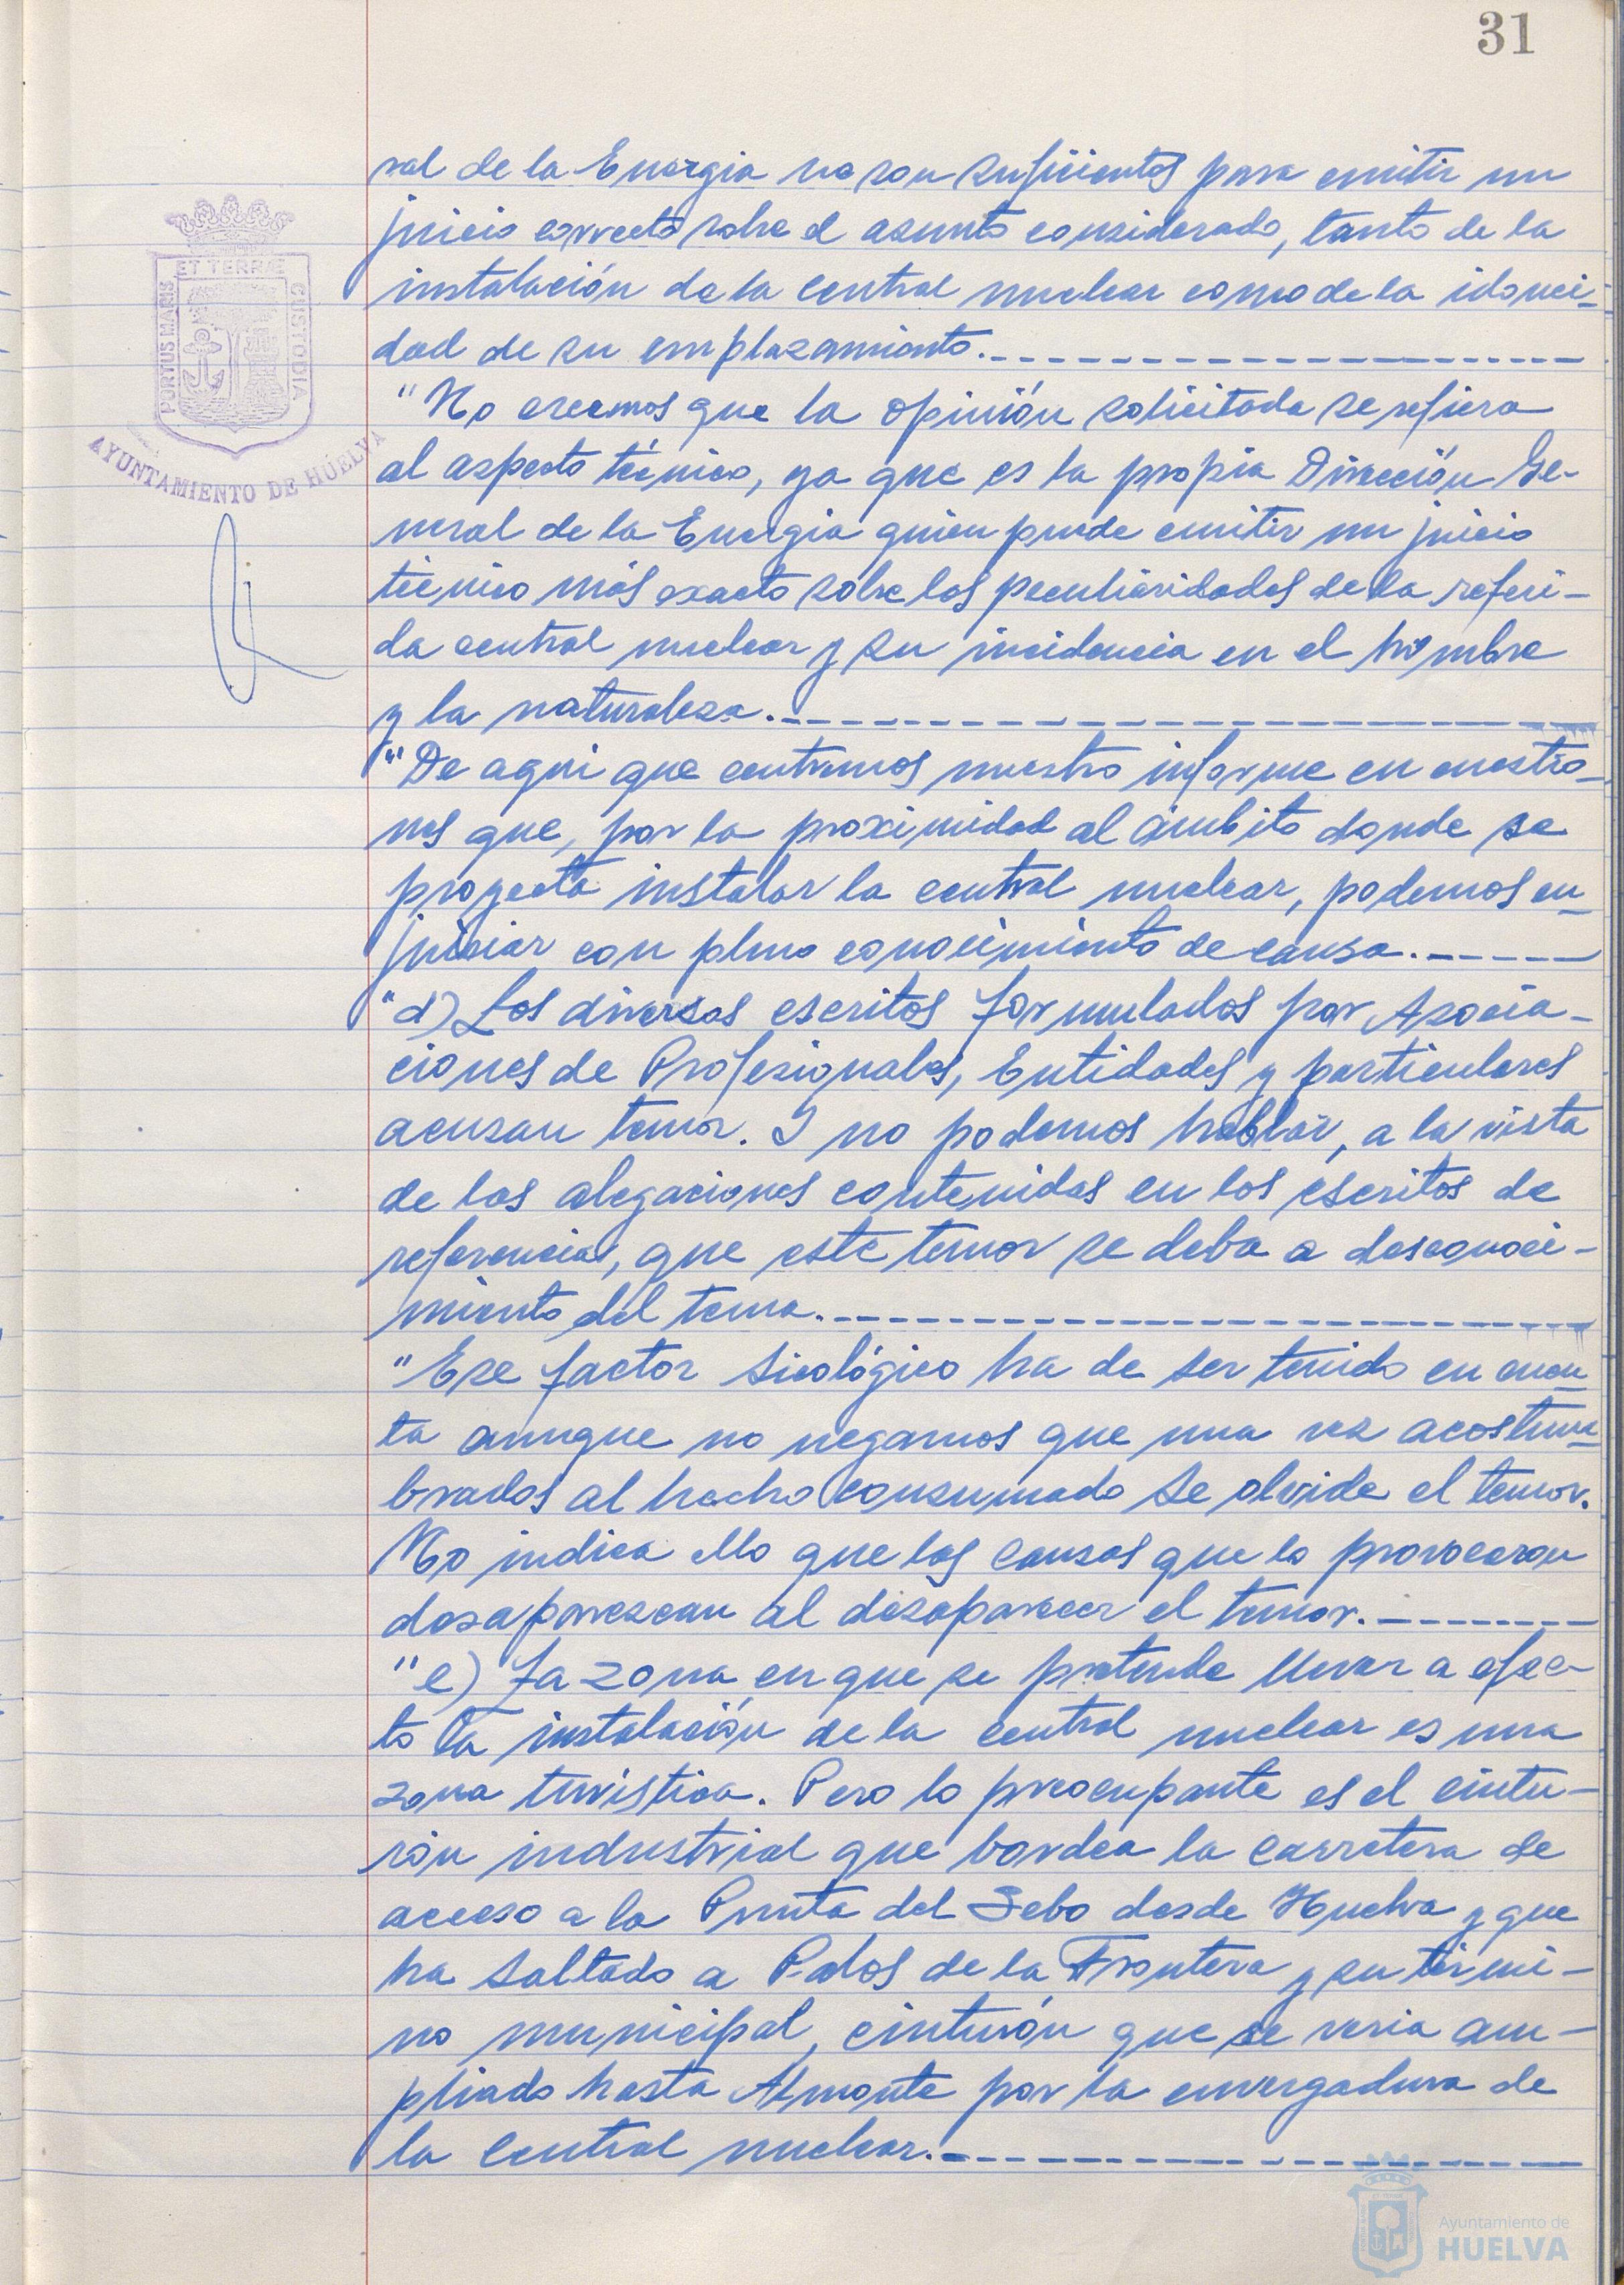 31
ral de la Energia no son suficientes para emitir un
juicio correcto sobre el asunto considerado, tanto de la
instalación de la central nuclear como de la idonei-
dad de su emplazamiento.
"No creemos que la opinión solicitada se refiera
al aspecto técnico, ya que es la propia Dirección Ge-
neral de la Energia quien puede emitir un juicio
técnico más exacto sobre las peculiaridades de la referi-
da central nuclear y su incidencia en el hombre
y la naturaleza.
"De aqui que centremos nuestro informe en cuestio-
nes que, por la proximidad al ámbito donde se
proyecta instalar la central nuclear, podemos en-
juiciar con pleno conocimiento de causa.
"d) Los diversos escritos formulados por Asocia-
ciones de Profesionales, Entidades y particulares
acusan temor. Y no podemos hablar, a la vista
de las alegaciones contenidas en los escritos de
referencia, que este temor se deba a desconoci-
miento del tema.
"Ese factor sicológico ha de ser tenido en cuen-
ta aunque no negamos que una vez acostum-
brados al hecho consumado se olvide el temor.
No indica ello que las causas que lo provocaron
desaparezcan al desaparecer el temor.
"e) La zona en que se pretende llevar a efec-
to la instalación de la central nuclear es una
zona turística. Pero lo preocupante es el cintu-
rón industrial que bordea la carretera de
acceso a la Punta del Sebo desde Huelva y que
ha saltado a Palos de la Frontera y su térmi-
no municipal, cinturón que se veria am-
pliado hasta Almonte por la envergadura de
la central nuclear.
PORTUS MARIS
ET TERRÆ
CUSTODIA
AYUNTAMIENTO DE HUELVA
Ayuntamiento de
HUELVA